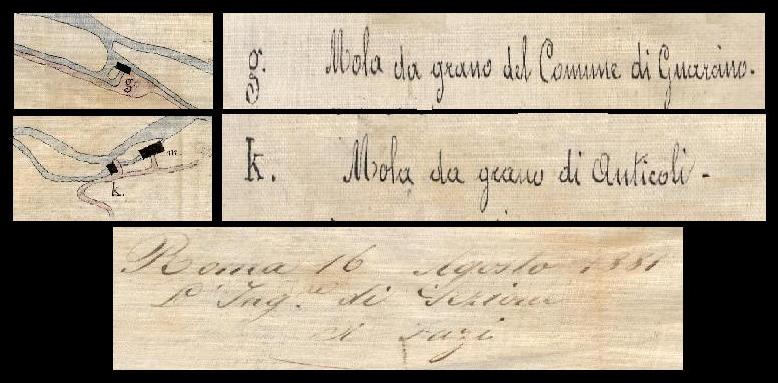 g.
g. Mola da grano del Comune di Guarcino.
m.
k.
k. Mola da grano di Anticoli -
Roma 16 Agosto 1881
L'Ing.re di Sezione